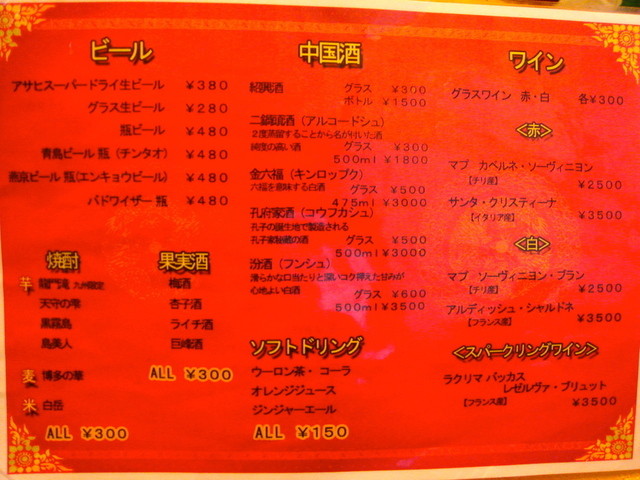 ビール
アサヒスーパードライ生ビール ￥380
グラス生ビール ￥280
瓶ビール ￥480
青島ビール 瓶 (チンタオ) ￥480
燕京ビール 瓶(エンキョウビール) ￥480
バドワイザー 瓶 ￥480
焼酎
芋 龍門滝 九州限定
天守の雫
黒霧島
島美人
麦 博多の華
米 白岳
ALL ￥300
果実酒
梅酒
杏子酒
ライチ酒
巨峰酒
ALL ￥300
中国酒
紹興酒 グラス ￥300
ボトル ￥1500
二鍋頭酒（アルコードシュ）
2度蒸留することから名が付いた酒
純度の高い酒 グラス ￥300
500ml ￥1800
金六福（キンロップク）
六福を意味する白酒 グラス ￥500
475ml ￥3000
孔府家酒（コウフカシュ）
孔子の誕生地で製造される
孔子家秘蔵の酒 グラス ￥500
500ml ￥3000
汾酒（フンシュ）
滑らかな口当たりと深いコク押えた甘みが
心地よい白酒 グラス ￥600
500ml ￥3500
ソフトドリング
ウーロン茶・ コーラ
オレンジジュース
ジンジャーエール
ALL ￥150
ワイン
グラスワイン 赤・白 各￥300
<赤>
マプ カベルネ・ソーヴィニヨン
【チリ産】 ￥2500
サンタ・クリスティーナ
【イタリア産】 ￥3500
<白>
マプ ソーヴィニヨン・ブラン
【チリ産】 ￥2500
アルディッシュ・シャルドネ
【フランス産】 ￥3500
<スパークリングワイン>
ラクリマ バッカス
レゼルヴァ・ブリュット
【フランス産】 ￥3500